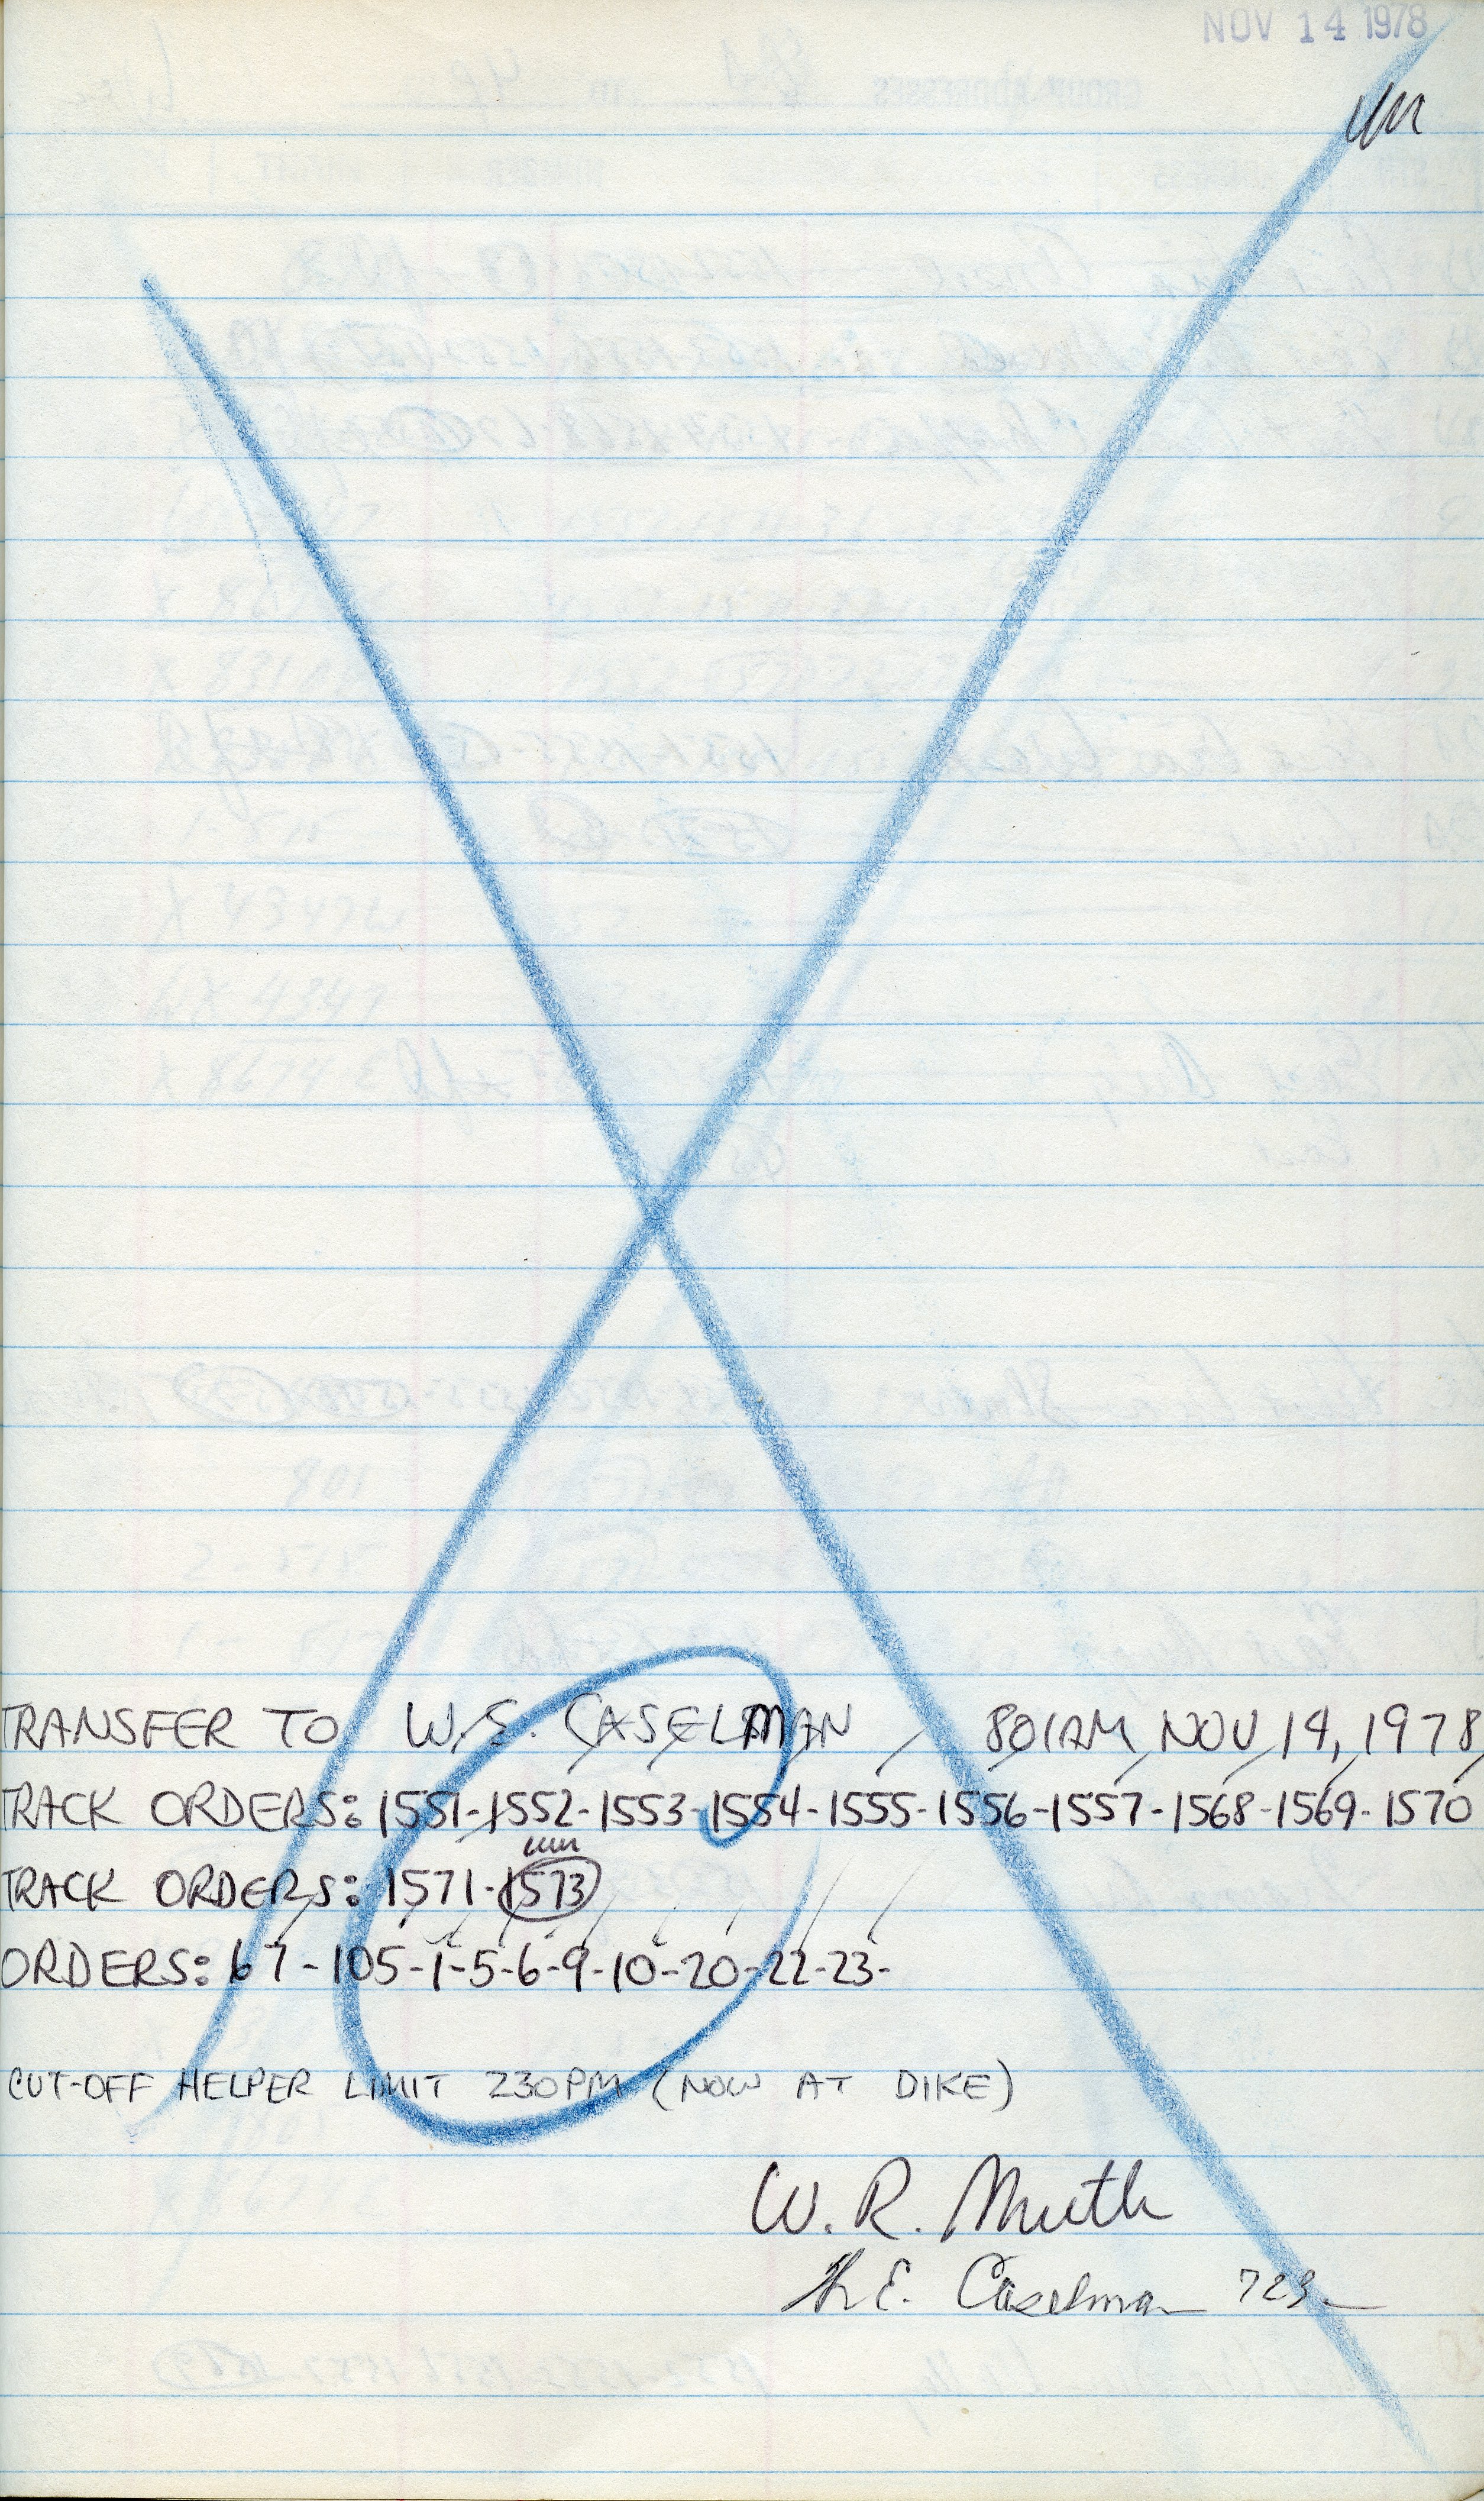 NOV 14 1978
TRANSFER TO W.S. CASELMAN 801AM, NOV 14, 1978
TRACK ORDERS: 1551-1552-1553-1554-1555-1556-1557-1568-1569-1570
TRACK ORDERS: 1571-1573
ORDERS: 67-105-1-5-6-9-10-20-22-23-
CUT-OFF HELPER LIMIT 230PM (NOW AT DIKE)
W. R. Muth
E. Caselman 723